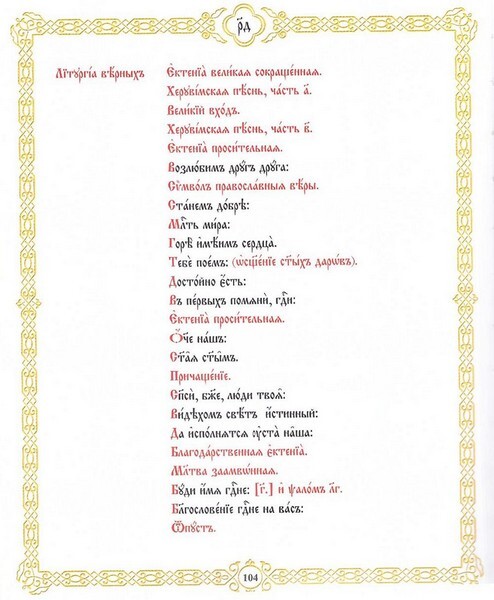 р҃д
Лїтꙋргі́а вѣ́рныхъ
Є҆ктенїа̀ вели́каѧ сокраще́ннаѧ.
Херꙋві́мскаѧ пѣ́снь, ча́сть а҃.
Вели́кїй вхо́дъ.
Херꙋві́мскаѧ пѣ́снь, ча́сть в҃.
Є҆ктенїа̀ проси́тельнаѧ.
Возлю́бимъ дрꙋ́гъ дрꙋ́га:
Сѷмво́лъ правосла́вныѧ вѣ́ры.
Ста́немъ до́брѣ:
Млⷭ҇ть ми́ра:
Горѣ̀ и҆мѣ́имъ сердца̀.
Тебѐ пое́мъ: (ѡ҆сщ҃е́нїе ст҃ы́хъ даро́въ).
Досто́йно є҆́сть:
Въ пе́рвыхъ помѧнѝ, гдⷭ҇и:
Є҆ктенїа̀ проси́тельнаѧ.
Ѻ҆́ч҃е на́шъ:
Ст҃а̑ѧ ст҃ы̑мъ.
Причаще́нїе.
Сп҃сѝ, бж҃е, лю́ди твоѧ̑:
Ви́дѣхомъ свѣ́тъ и҆́стинный:
Да и҆спо́лнѧтсѧ ᲂу҆ста̀ на̑ша:
Благода́рственнаѧ є҆ктенїа̀.
Мл҃тва заамвѡ́ннаѧ.
Бꙋ́ди и҆́мѧ гдⷭ҇не: [г҃.] и҆ ѱало́мъ л҃г.
Бл҃гослове́нїе гдⷭ҇не на ва́съ:
Ѿпꙋ́стъ.
104